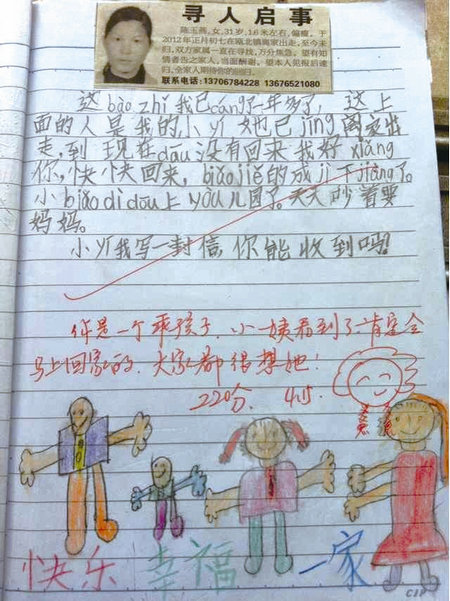 寻人启事
陈玉燕,女,31岁,1.6米左右,偏瘦。于
2012年正月初七在瓯北镇离家出走,至今未
归,双方家属一直在寻找,万分焦急。望有知
情者告之家人,当面酬谢。望本人见报后速
归,全家人期待你的回归。
联系电话:13706784228 13676521080
这bào zhǐ我已cáng了一年多了,这上
面的人是我的小yí她已jīng离家出
走,到现在dāu没有回来我好xiǎng
你,快快回来,biǎo jiě的成jì下jiàng了。
小biǎo dì dōu上yòu儿园了。天天吵着要
妈妈。
小yí我写一封信你能收到吗!
你是一个乖孩子,小姨看到了肯定会
马上回家的,大家都很想她!
220分. 4.15.
快乐 幸福 一家
CIP